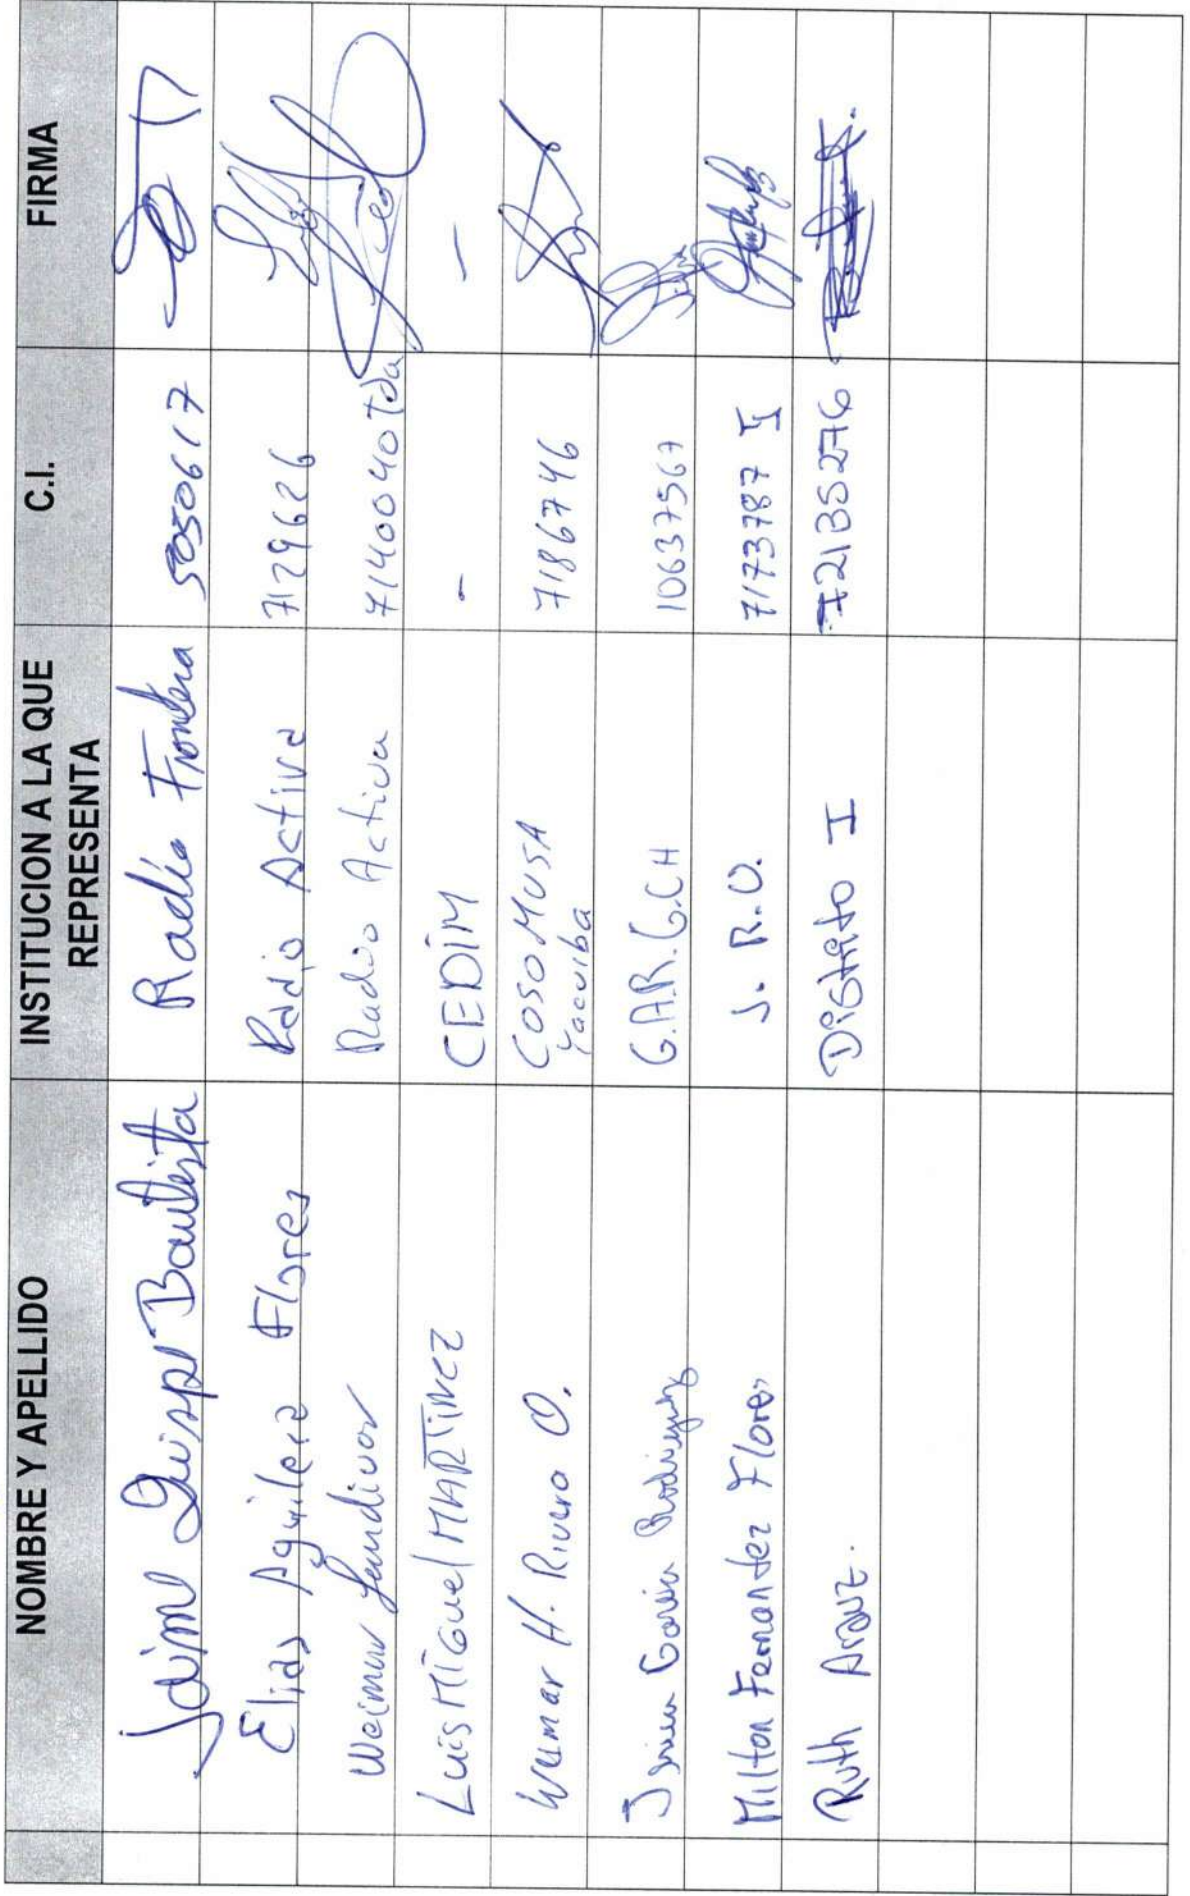 NOMBRE Y APELLIDO INSTITUCION A LA QUE REPRESENTA C.I. FIRMA
Jaime Quispe Bautista Radio Frontera 5050617
Elias Aguilera Flores Radio Activa 7129626
Weimar Sandivar Radio Activa 7140040 Tja
Luis Miguel MARTINEZ CEDIM - -
Wilmar H. Rivero O. COSOMUSA Yacuiba 7186746
García Rodriguez G.A.R.G.CH 10637567
Milton Fernandez Flores J.R.O. 7173787
Ruth Arauz. Distrito I